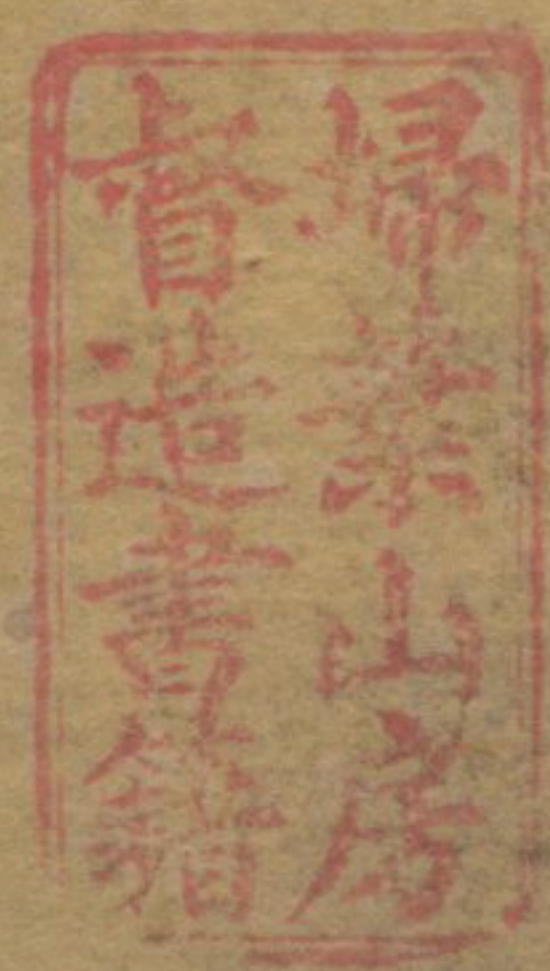 掃葉山房
督造書籍